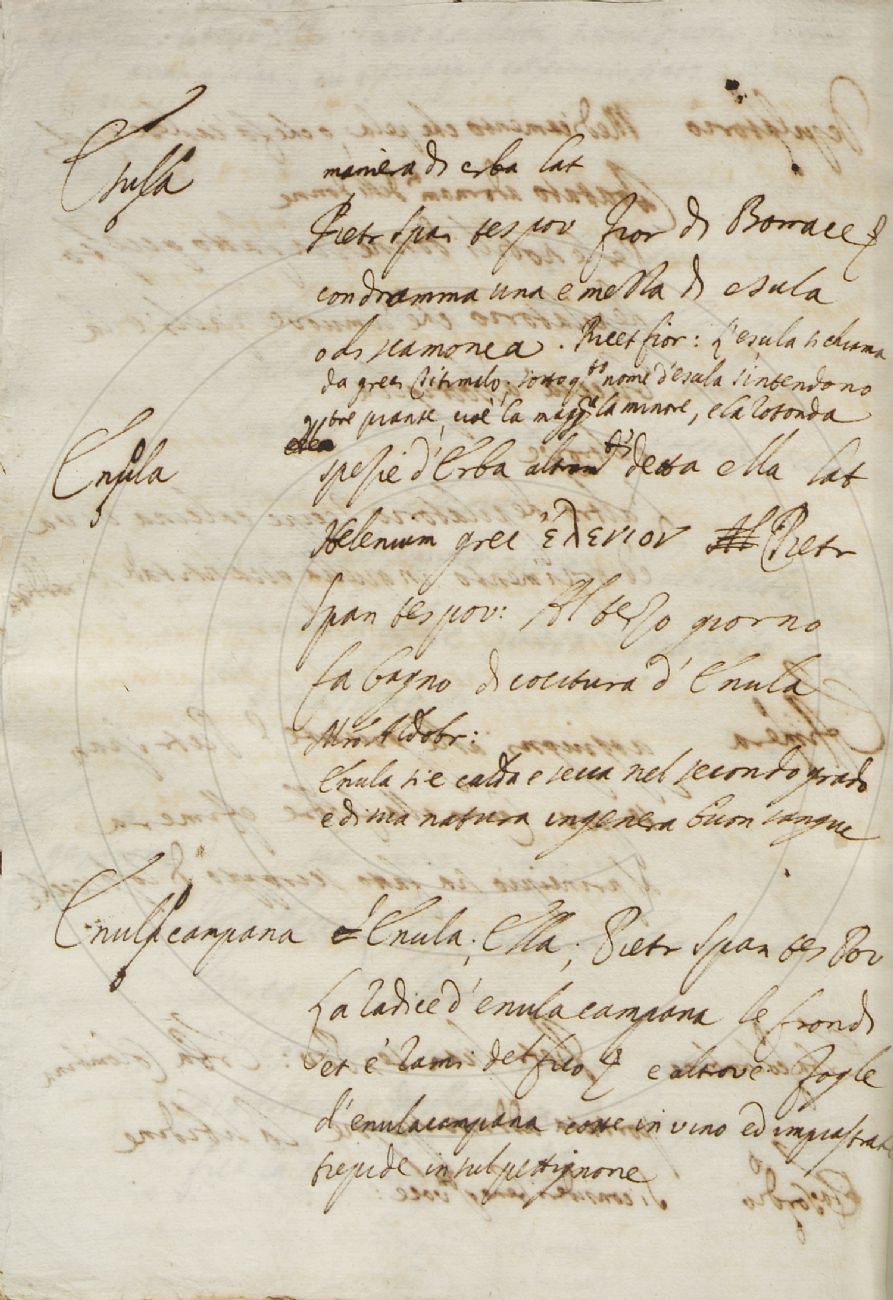 Esula maniera di erba lat
Pietr Span tes pov Fior di Borrace
con dramma una e mezza di esula
o di scamonea. Ricet fior: L'esula si chiama
da greci titimalo. sotto q.to nome d'esula s'intendono
tre piante, cioè la magg.re la minore, e la rotonda
Enula spezie d'Erba altrim.ti detta ella lat
Helenium grec ἑλενιον Pietr
Span tes pov: Al terzo giorno
fa bagno di cocitura d'Enula
M.ro Aldobr:
Enula si è calda e secca nel secondo grado
e di sua natura ingenera buon sangue
Enula campana Enula; Ella; Pietr Span tes Pov
La radice d'enula campana le frondi
et è rami del fico e altrove Fogle
d'enula campana cotte in vino ed impiastrate
tiepide in sul pettignone